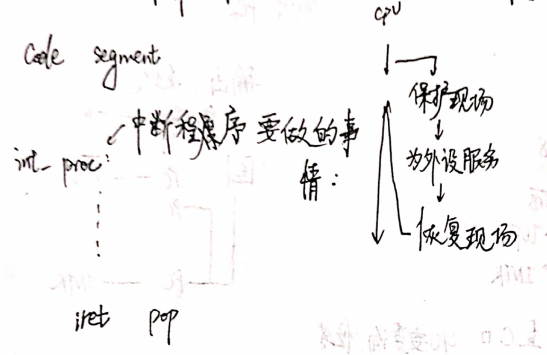 CPU
code segment
保护现场
int_proc: 中断程序 要做的事
情:
为外设服务
恢复现场
iret pop